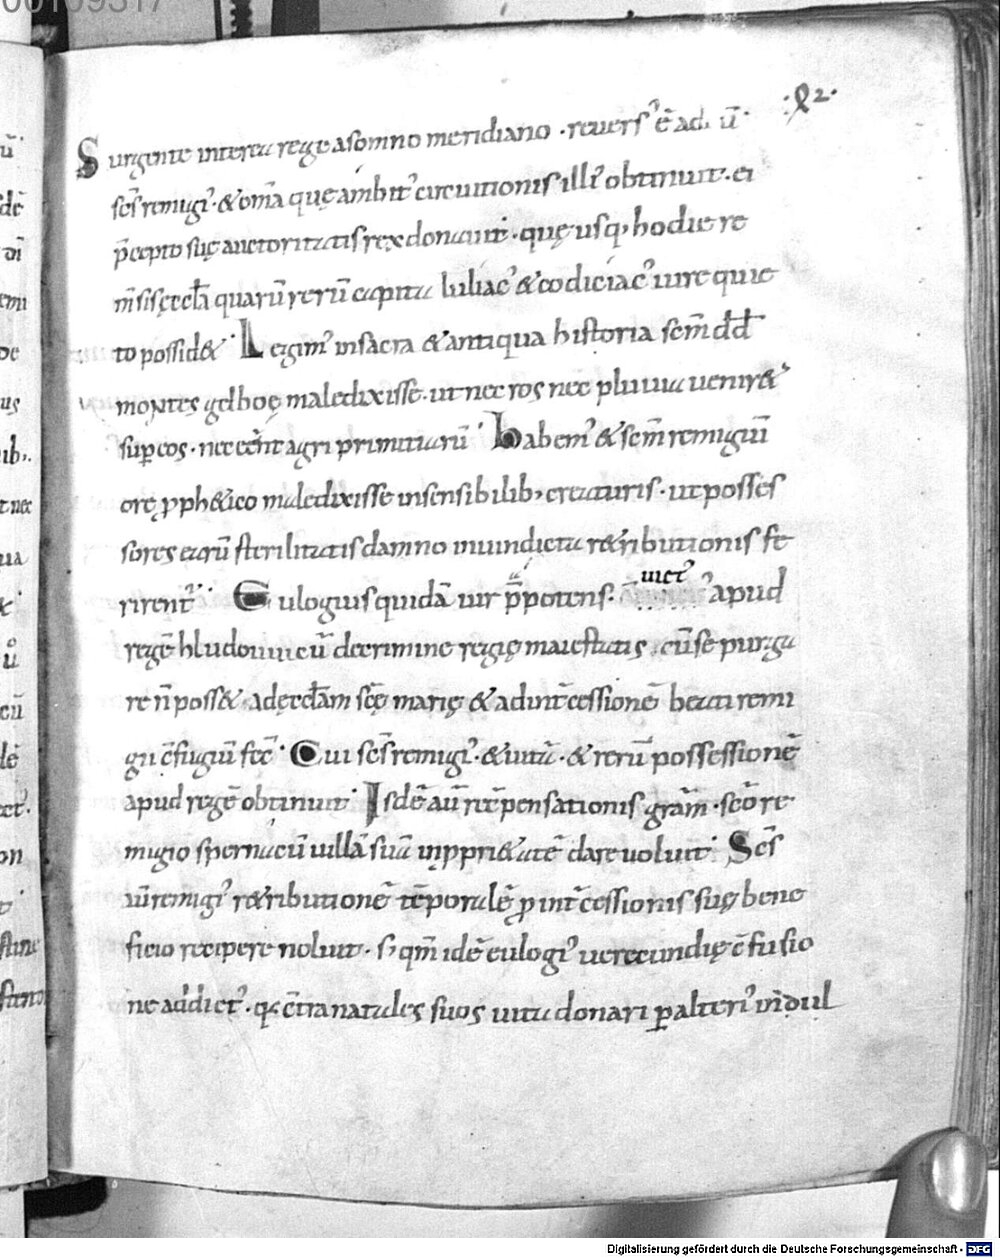 00109317
:92·
Surgente interea rege a somno meridiano · reuers᾽ ē ad ū·
scs̄ remigi᾽ · & om̄a quę ambit᾽ circuitionis illi᾽ obtinuit · ei
p̄cepto suę auctoritatis rex donauit · quę usq; hodie re
m̄sis ęccła quarū rerū capita luliac᾽ & codiciac᾽ iure quie
to possid& · Legim᾽ in sacra & antiqua historia scm̄ dd̄
montes gelboę maledixisse · ut nec ros nec pluuia uenir&
sup eos · nec eēnt agri primitiarū · Habem᾽ & scm̄ remigiū
orę pph&ico maledixisse insensibilib; creaturis · ut posses
sores earū sterilitatis damno in uindicta r&ributionis fe
rirent᾽ · Eulogius quidā uir p̄potens · uict᾽ apud
regē hludouuicū de crimine regię maiestatis · cū se purga
re n̄ poss& · ad ęccłam scę̄ marię & ad int̄cessionē beati remi
gii c̄fugiū fec̄ · Cui scs̄ remigi᾽ · & uitā · & rerū possessionē
apud regē obtinuit · Isdē aū rec̄pensationis gram̄ · scō re
migio spernacū uillā suā in ppri&atē dare uoluit · Scs̄
ū remigi᾽ r&ributionē tēporalē p int̄cessionis suę bene
ficio recipere noluit · s; qm̄ idē eulogi᾽ uerecundię c̄fusio
ne addict᾽ · q; c̄tra natales suos uita donari p alteri᾽ uidul
Digitalisierung gefördert durch die Deutsche Forschungsgemeinschaft - DFG